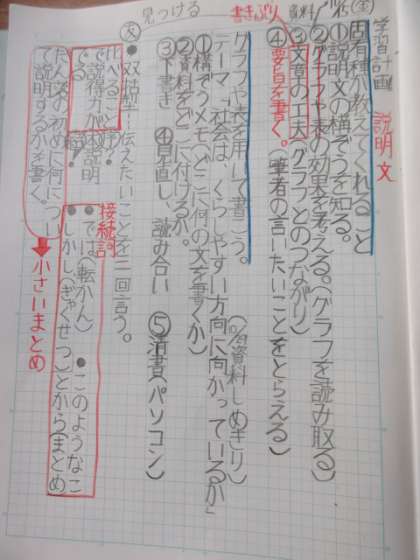 学習計画 説明文
㊎固有種が教えてくれること
①説明文の構ぞうを知る。
②グラフや表の効果を考える。(グラフを読み取る)
③文章の工夫(グラフとのつながり)
④要旨を書く。(筆者の言いたいことをとらえる)
グラフや表を用いて書こう。
テーマ「社会は、くらしやすい方向に向かっているか」
①構ぞうメモ(どこに何の文を書くか)
②資料をどこに付けるか。
③下書き ④見直し、読み合い ⑤清書(パソコン)
見つける
書きぶり
資料
●双括型…伝えたいことを二回言う。
比べること
で説得力が
でる
だん落の初めに何につい
て説明するかを書く。
小さいまとめ
接続詞
●では(転かん)
●しかし(ぎゃくせつ)
●このようなことから(まとめ)